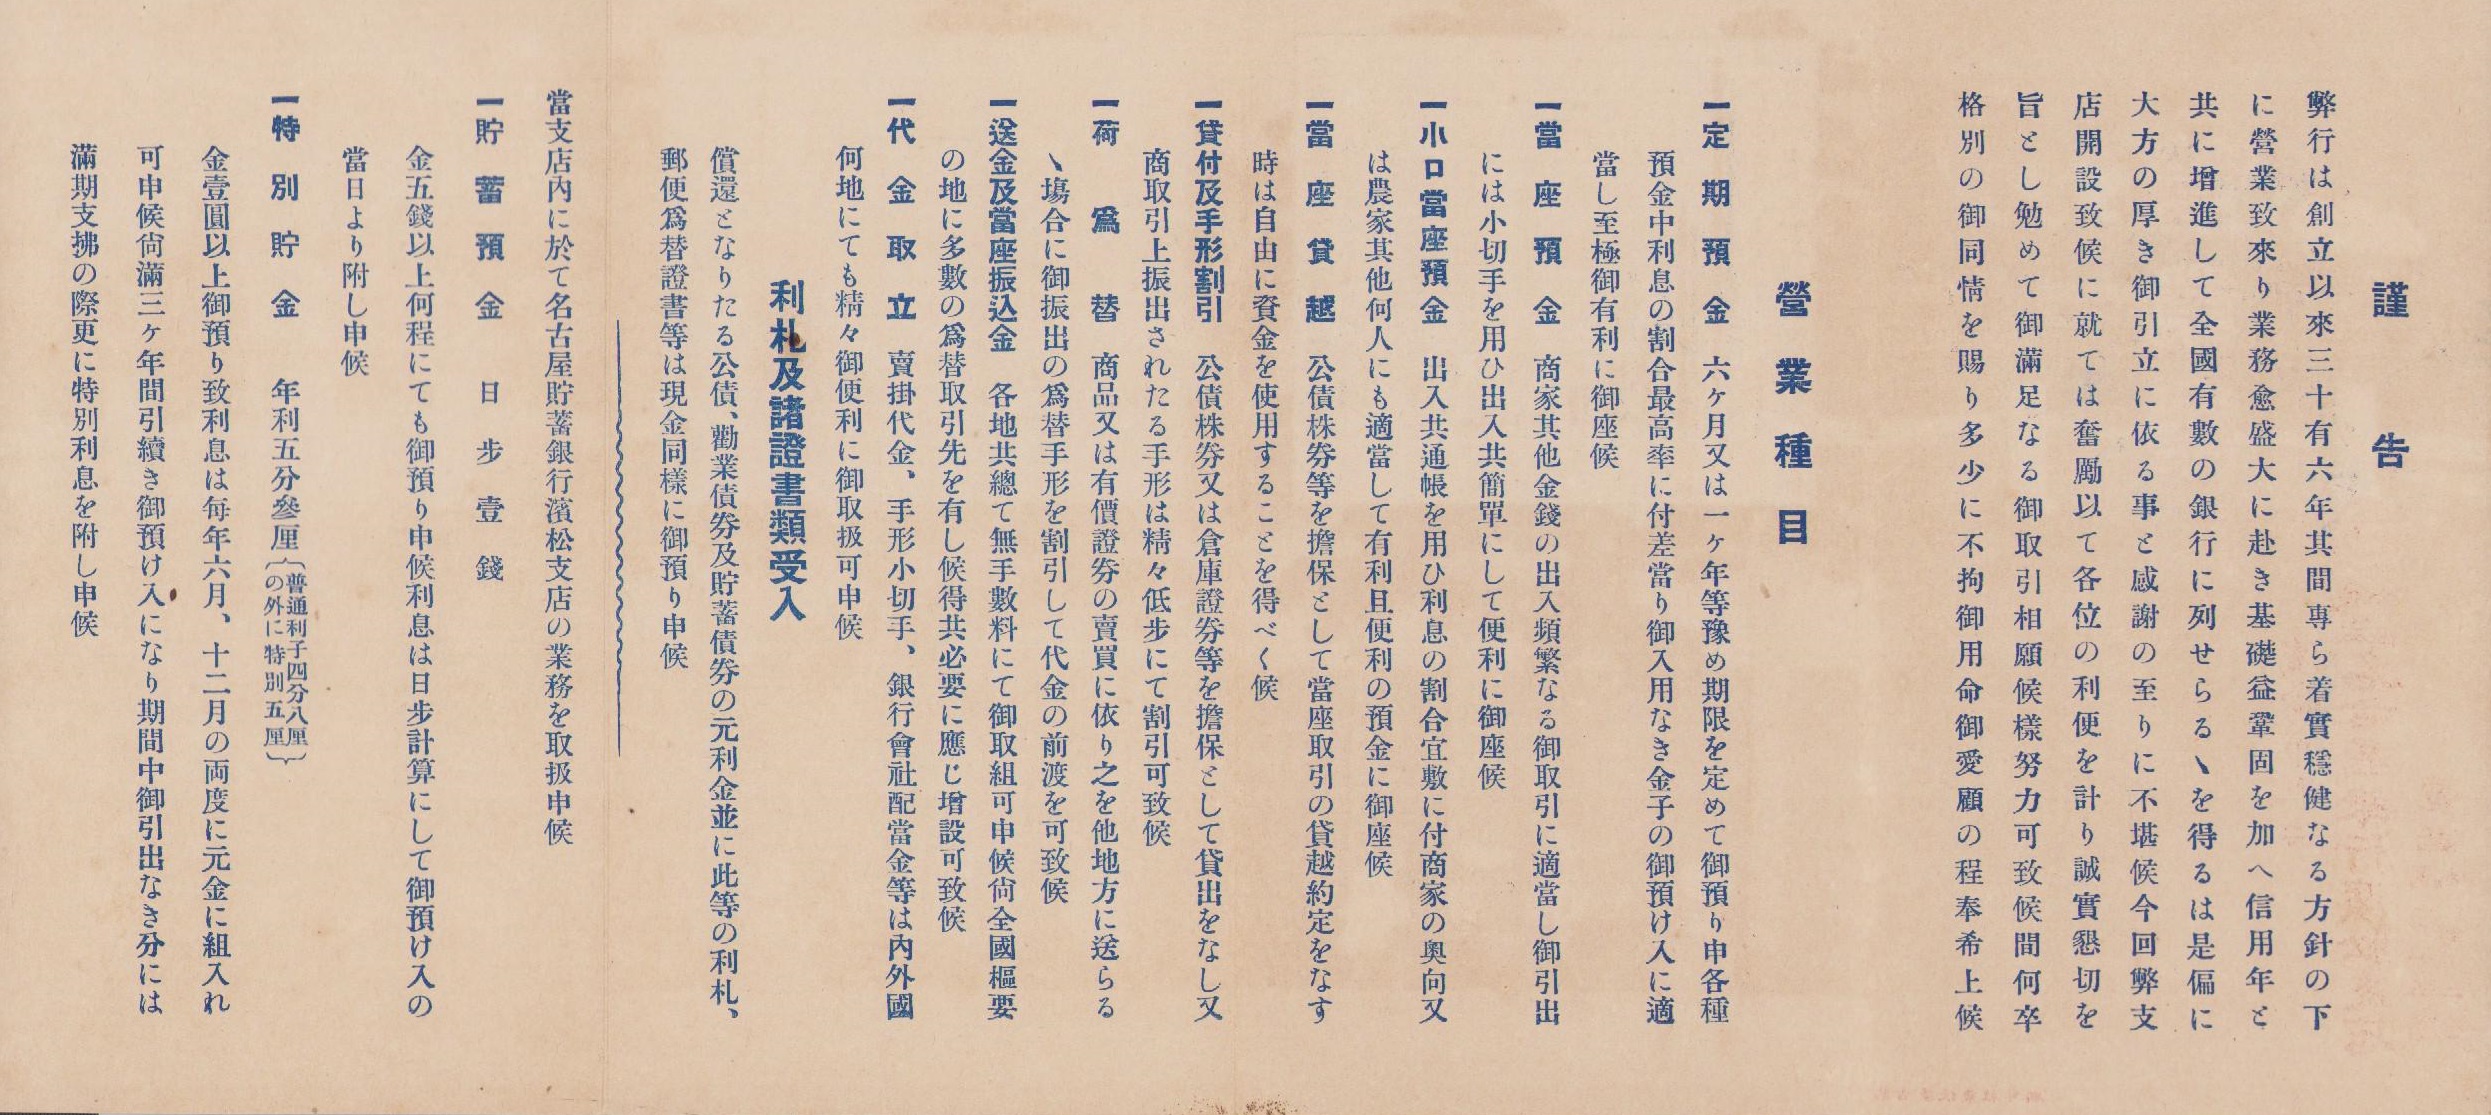 謹告
弊行は創立以來三十有六年其間專ら着實穩健なる方針の下
に營業致來り業務愈盛大に赴き基礎益鞏固を加へ信用年と
共に增進して全國有數の銀行に列せらるヽを得るは是偏に
大方の厚き御引立に依る事と感謝の至りに不堪候今回弊支
店開設致候に就ては奮勵以て各位の利便を計り誠實懇切を
旨とし勉めて御滿足なる御取引相願候樣努力可致候間何卒
格別の御同情を賜り多少に不拘御用命御愛顧の程奉希上候
營業種目
一定期預金 六ヶ月又は一ヶ年等豫め期限を定めて御預り申各種
預金中利息の割合最高率に付差當り御入用なき金子の御預け入に適
當し至極御有利に御座候
一當座預金 商家其他金錢の出入頻繁なる御取引に適當し御引出
には小切手を用ひ出入共簡單にして便利に御座候
一小口當座預金 出入共通帳を用ひ利息の割合宜敷に付商家の奧向又
は農家其他何人にも適當して有利且便利の預金に御座候
一當座貸越 公債株券等を擔保として當座取引の貸越約定をなす
時は自由に資金を使用することを得べく候
一貸付及手形割引 公債株券又は倉庫證券等を擔保として貸出をなし又
商取引上振出されたる手形は精々低步にて割引可致候
一荷爲替 商品又は有價證券の賣買に依り之を他地方に送らる
ヽ塲合に御振出の爲替手形を割引して代金の前渡を可致候
一送金及當座振込金 各地共總て無手數料にて御取組可申候尙全國樞要
の地に多數の爲替取引先を有し候得共必要に應じ增設可致候
一代金取立 賣掛代金、手形小切手、銀行會社配當金等は內外國
何地にても精々御便利に御取扱可申候
利札及諸證書類受入
償還となりたる公債、勸業債券及貯蓄債券の元利金並に此等の利札、
郵便爲替證書等は現金同樣に御預り申候
當支店內に於て名古屋貯蓄銀行濱松支店の業務を取扱申候
一貯蓄預金 日步壹錢
金五錢以上何程にても御預り申候利息は日步計算にして御預け入の
當日より附し申候
一特別貯金 年利五分參厘
(普通利子四分八厘
の外に特別五厘)
金壹圓以上御預り致利息は每年六月、十二月の両度に元金に組入れ
可申候尙滿三ヶ年間引續き御預け入になり期間中御引出なき分には
滿期支拂の際更に特別利息を附し申候